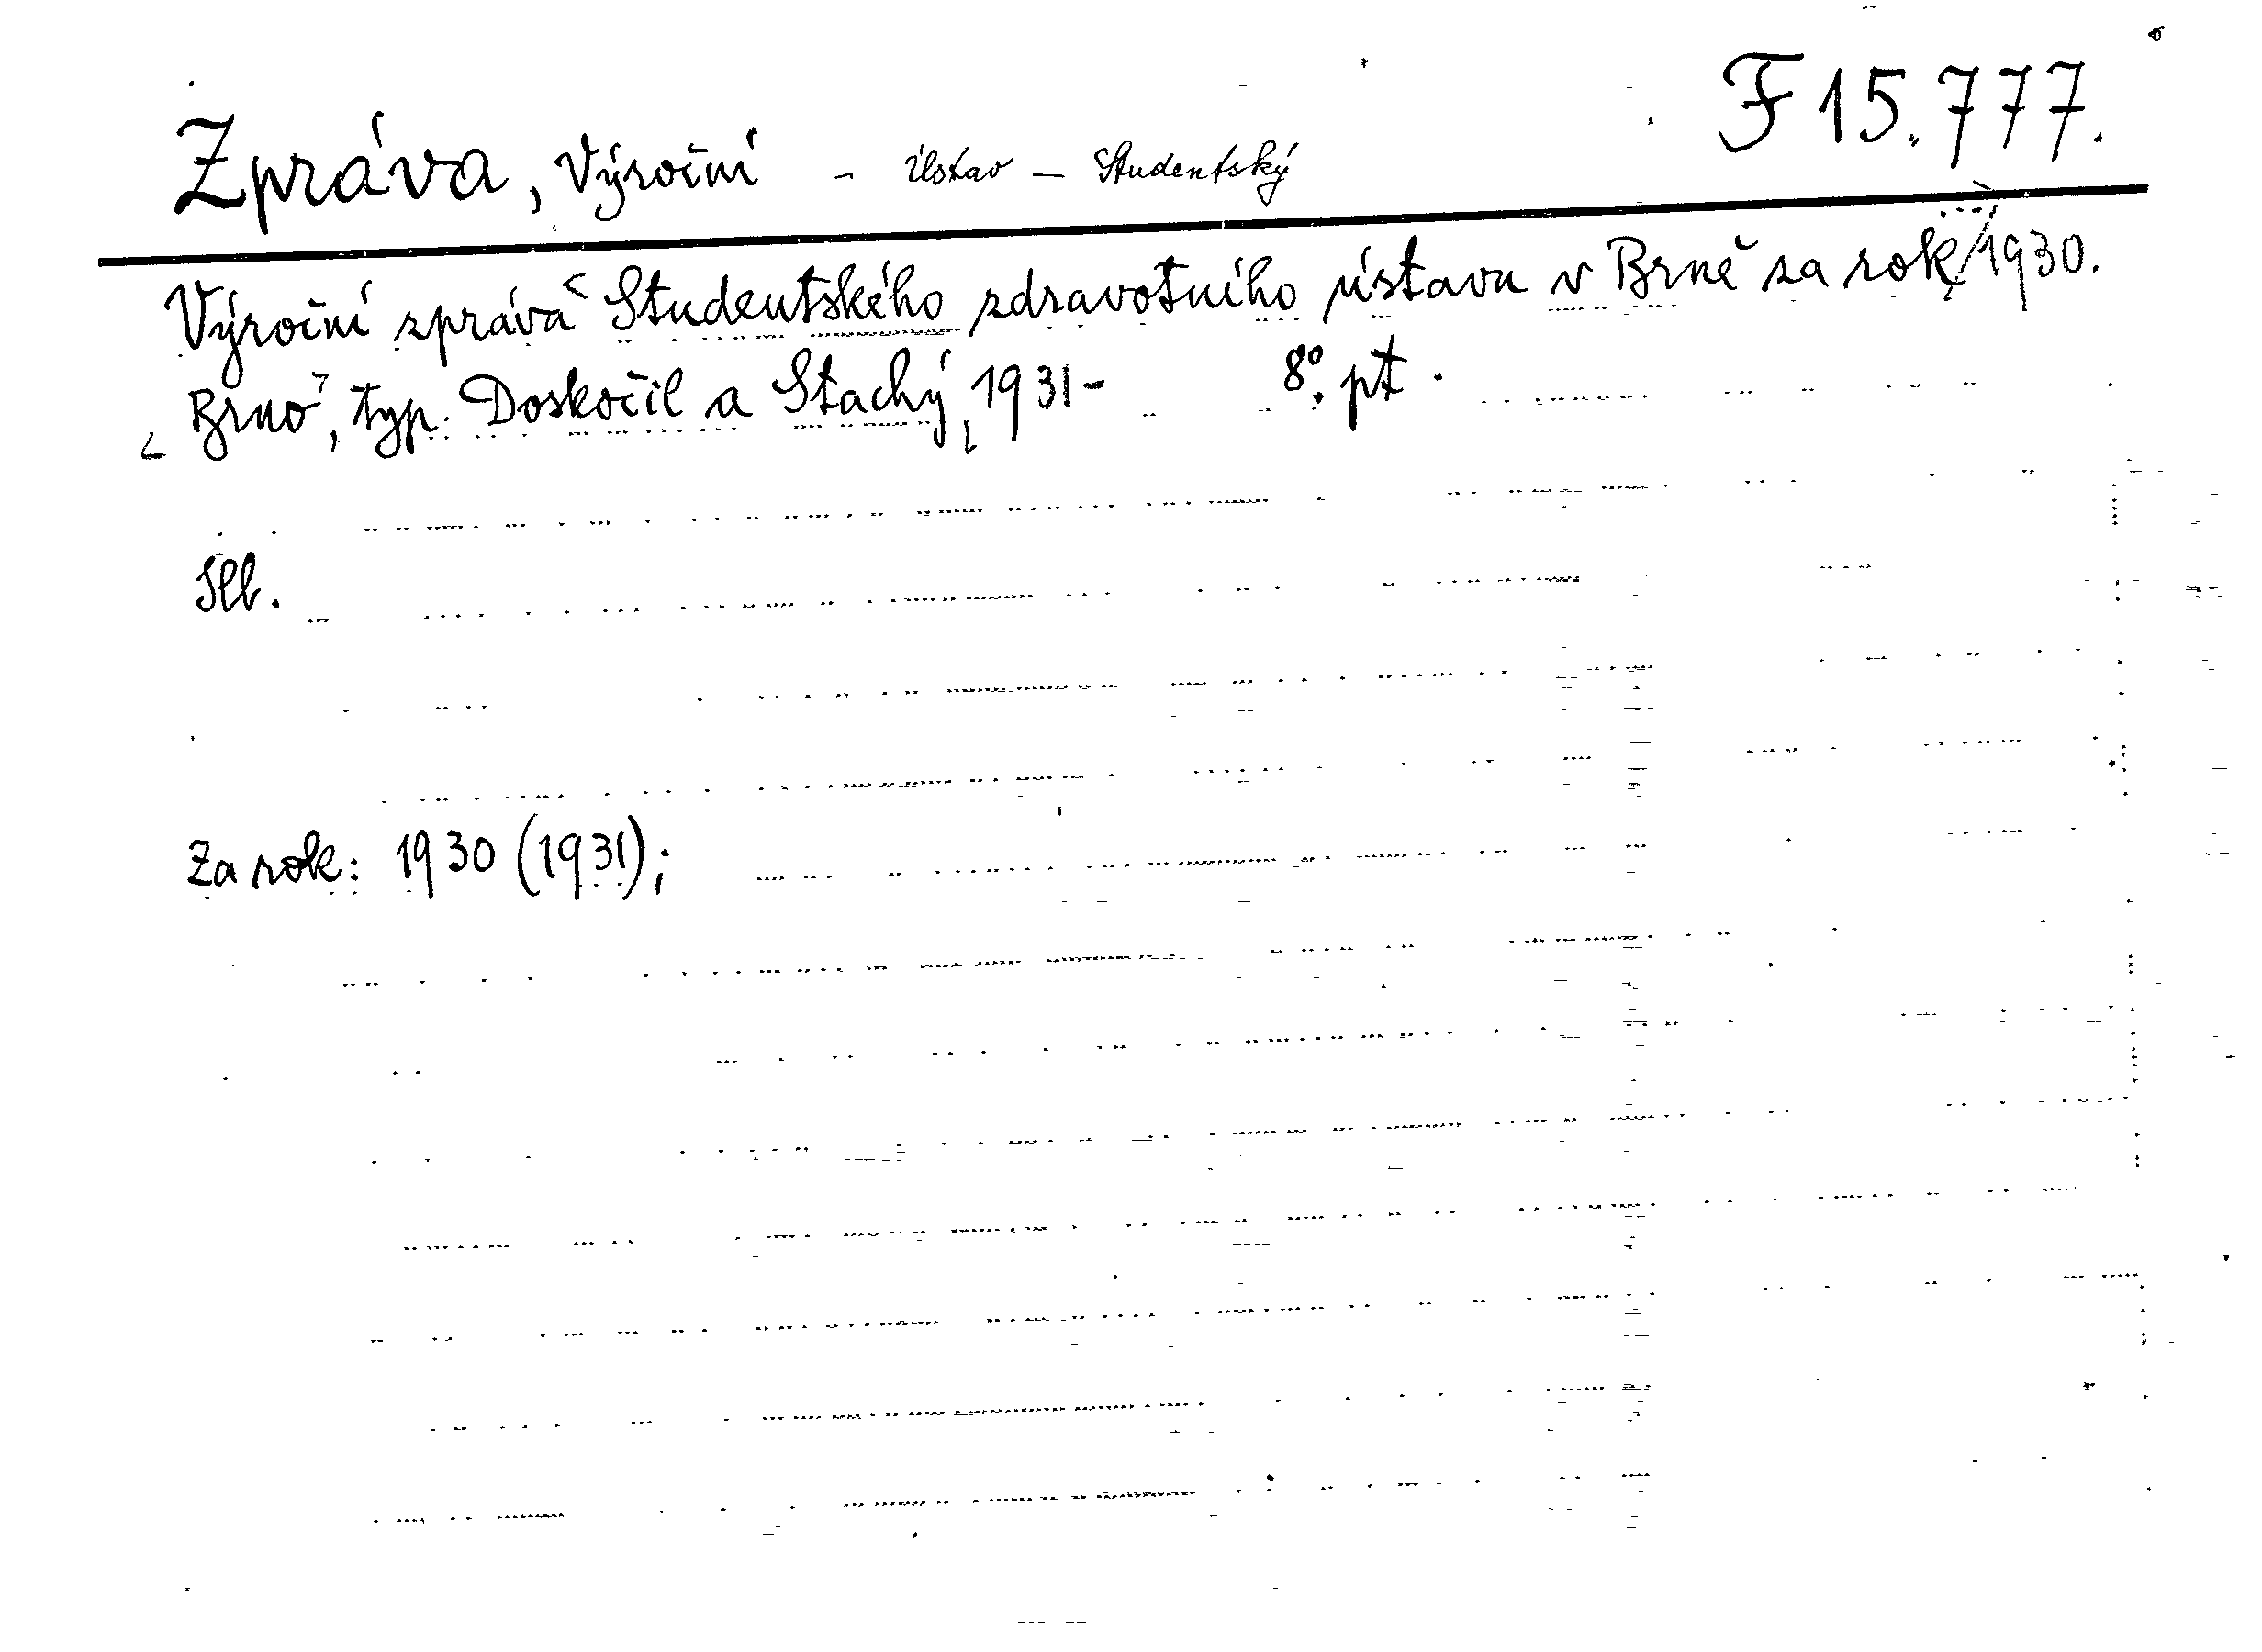 F 15.777.
Zpráva, Výroční - Ústav - Studentský
Výroční zpráva Studentského zdravotního ústavu v Brně za rok 1930.
Brno, typ. Doskočil a Stachý, 1931- 8°. pt.
Slb.
Za rok: 1930 (1931);